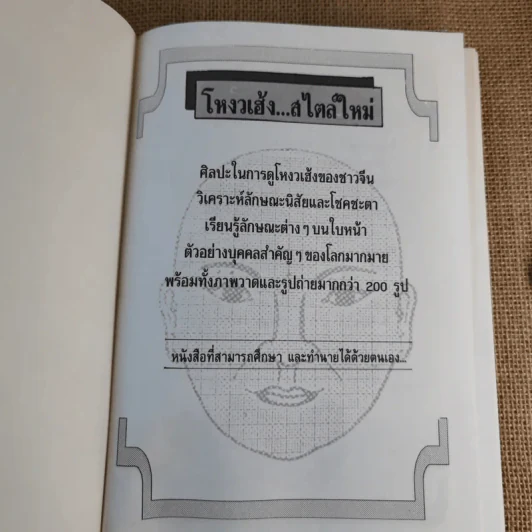 โหงวเฮ้ง...สไตล์ใหม่
ศิลปะในการดูโหงวเฮ้งของชาวจีน
วิเคราะห์ลักษณะนิสัยและโชคชะตา
เรียนรู้ลักษณะต่าง ๆ บนใบหน้า
ตัวอย่างบุคคลสำคัญ ๆ ของโลกมากมาย
พร้อมทั้งภาพวาดและรูปถ่ายมากกว่า 200 รูป
หนังสือที่สามารถศึกษา และทำนายได้ด้วยตนเอง...